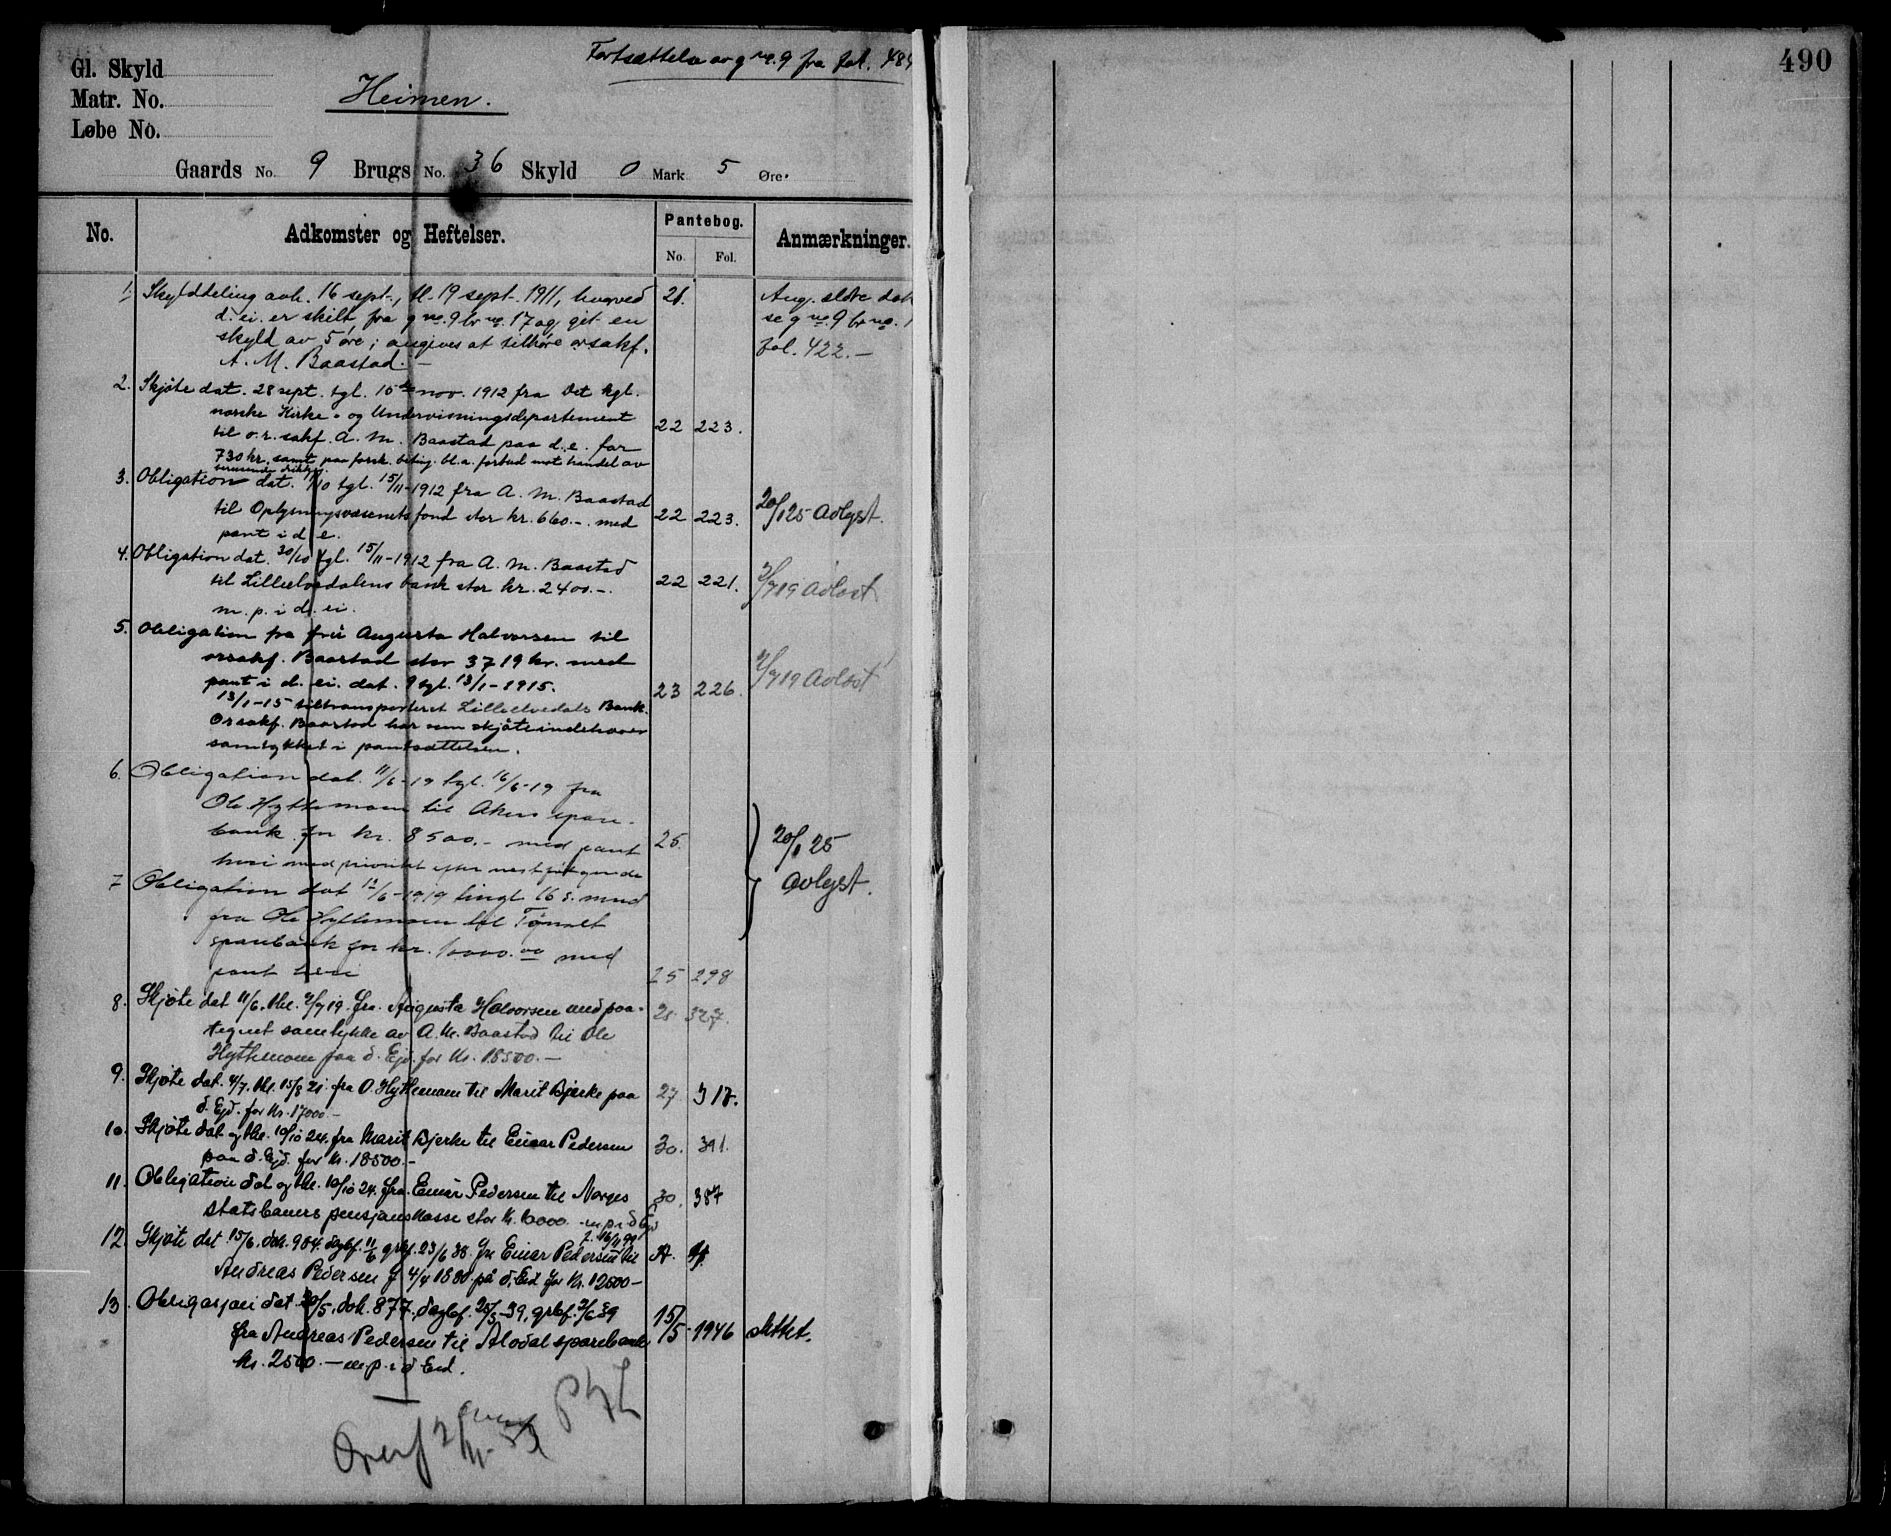 Fortsættelse av g no. 9 fra fol. 489
Gl. Skyld
Matr. No.
Løbe No.
Heimen.
Gaards No. 9 Brugs No. 36 Skyld 0 Mark 5 Øre.
490
No. Adkomster og Heftelser. Pantebog. Anmærkninger.
No. Fol.
1. Skylddeling avh. 16 sept., tl. 19 sept. 1911, hvorved 21. Ang. eldre dok
d. ei. er skilt fra g no. 9 br no. 17 og git en se g no. 9 br no. 1
skyld av 5 øre; angives at tilhøre orsakf. fol. 422.—
A. M. Baastad.—
2. Skjøte dat. 28 sept. tgl. 15de nov. 1912 fra Det kgl.
norske Kirke- og Undervisningsdepartement
til o.r. sakf. A. M. Baastad paa d.e. for 22 223.
730 kr. samt paa forsk. beting. bl.a. forbud mot handel av
berusende drikke.
3. Obligation dat. /10 tgl. 15/11-1912 fra A. M. Baastad
til Oplysningsvæsenets fond stor kr. 660.-. med 22 223. 20/1 25 Avlyst.
pant i d. e.
4. Obligation dat. 30/10 tgl. 15/11-1912 fra A. M. Baastad
til Lilleelvedalens bank stor kr. 2400.-. 22 221. 2/7 19 Avlæst
m. p. i d. ei.
5. Obligation fra frü Augusta Halvorsen til
orsakf. Baastad stor 3719 kr. med
pant i d. ei. dat. & tgl. 13/1-1915. 23 226. 2/7 19 Avlæst
13/1-15 tiltransporteret Lilleelvedals Bank.
Orsakf. Baastad har som skjøteindehaver
samtykket i pantsættelsen.
6. Obligation dat. 11/6-19 tgl. 16/6-19 fra
Ole Hyttemoen til Akers spare-
bank for kr. 8500.- med pant 25. 20/1 25
heri med prioritet efter nestfølgende
7 Obligation dat 12/6-1919 tingl. 16 s. mnd Avlyst.
fra Ole Hyttemoen til Tønset
sparebank for kr. 10000.00 med
pant heri 25 298
8. Skjøte dat 11/6. thl. 2/7 19. fra Augusta Halvorsen med paa- 25 327.
tegnet samtykke av A. M. Baastad til Ole
Hyttemoen paa d. Ejd. for Kr. 18500.—
9. Skjøte dat. 4/7. thl. 15/8 21. fra O. Hyttemoen til Marit Bjerke paa 27 317.
d. Ejd. for Kr. 17000.—
10. Skjøte dat. og thl. 10/10 24. fra Marit Bjerke til Einar Pedersen 30. 391.
paa d. Ejd. for Kr. 18500.-
11. Obligation dat og thl. 10/10 24. fra Einar Pedersen til Norges 30. 387
Statsbaners pensjonskasse stor Kr. 10000.- m p. i d Ejd
12. Skjøte dat 15/6. dok. 904. dagbf. grbf. 23/6 38 fra Einar Pedersen til A.
Andreas Pedersen f 4/4 1880 på d. Eid for Kr. 12500—
13 Obligasjon dat 20/5. dok. 877. dagbf. 25/5-39. grbf. 2/6 39
fra Andreas Pedersen til Alvdal sparebank 15/5 - 1946 slettet.
kr. 2500.— m.p. i d Eid.
Overf 2/11-53